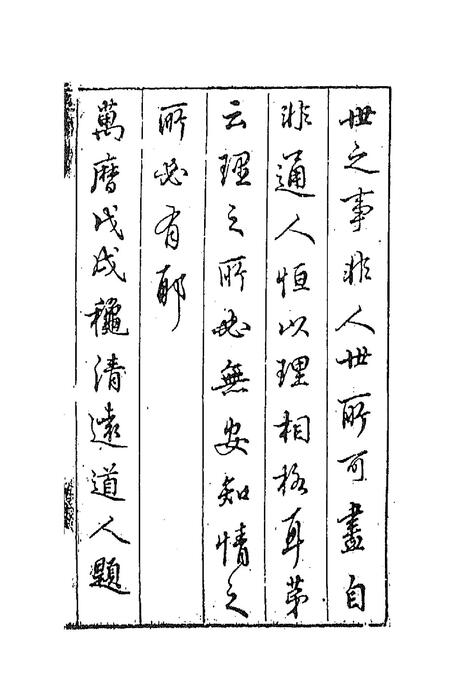 世之事非人世所可盡自
非通人恒以理相格耳第
云理之所必無安知情之
所必有耶
萬曆戊戌穐清遠道人題